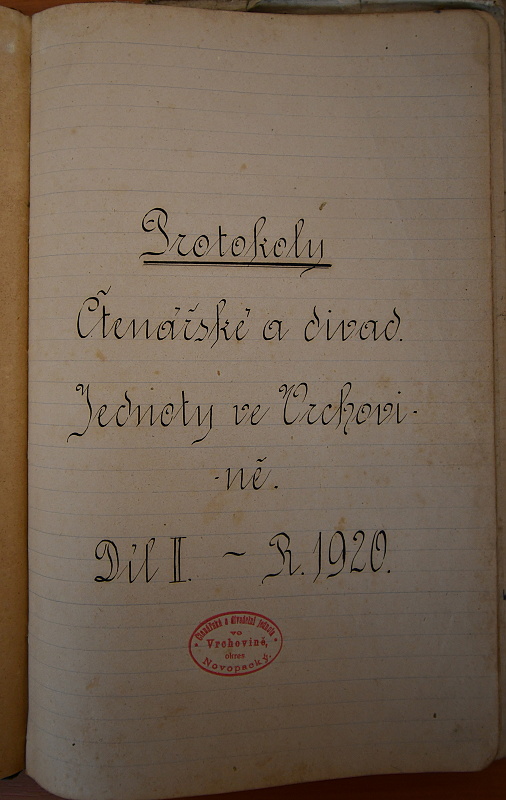 Protokoly
Čtenářské a divad.
Jednoty ve Vrchovi-
-ně.
Díl II. - R. 1920.
Čtenářská a divadelní jednota
ve
Vrchovině,
okres
Novopacký.